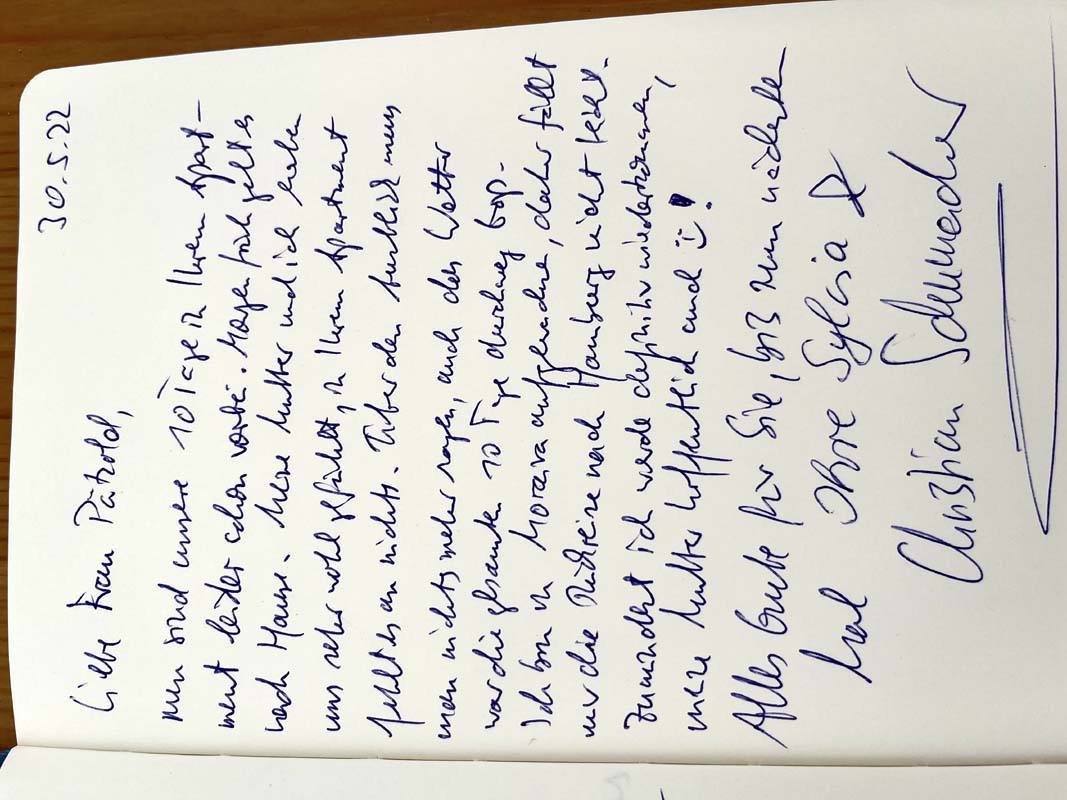 30.5.22
Liebe Frau Pätzold,
nun sind unsere 10 Tage in Ihrem Apart-
ment leider schon vorbei. Morgen früh geht es
nach Hause. Meine Mutter und ich haben
uns sehr wohl gefühlt, in Ihrem Apartment
fehlt es an nichts. Über den Ausblick muss
man nichts mehr sagen, auch das Wetter
war die gesamten 10 Tage durchweg top.
Ich bin in Moraira aufgewachsen, daher fällt
mir die Rückreise nach Hamburg nicht leicht.
Zumindest ich werde definitiv wiederkommen,
meine Mutter hoffentlich auch ☺!
Alles Gute für Sie, bis zum nächsten
Mal Ihre Sylvia &
Christian Schumacher